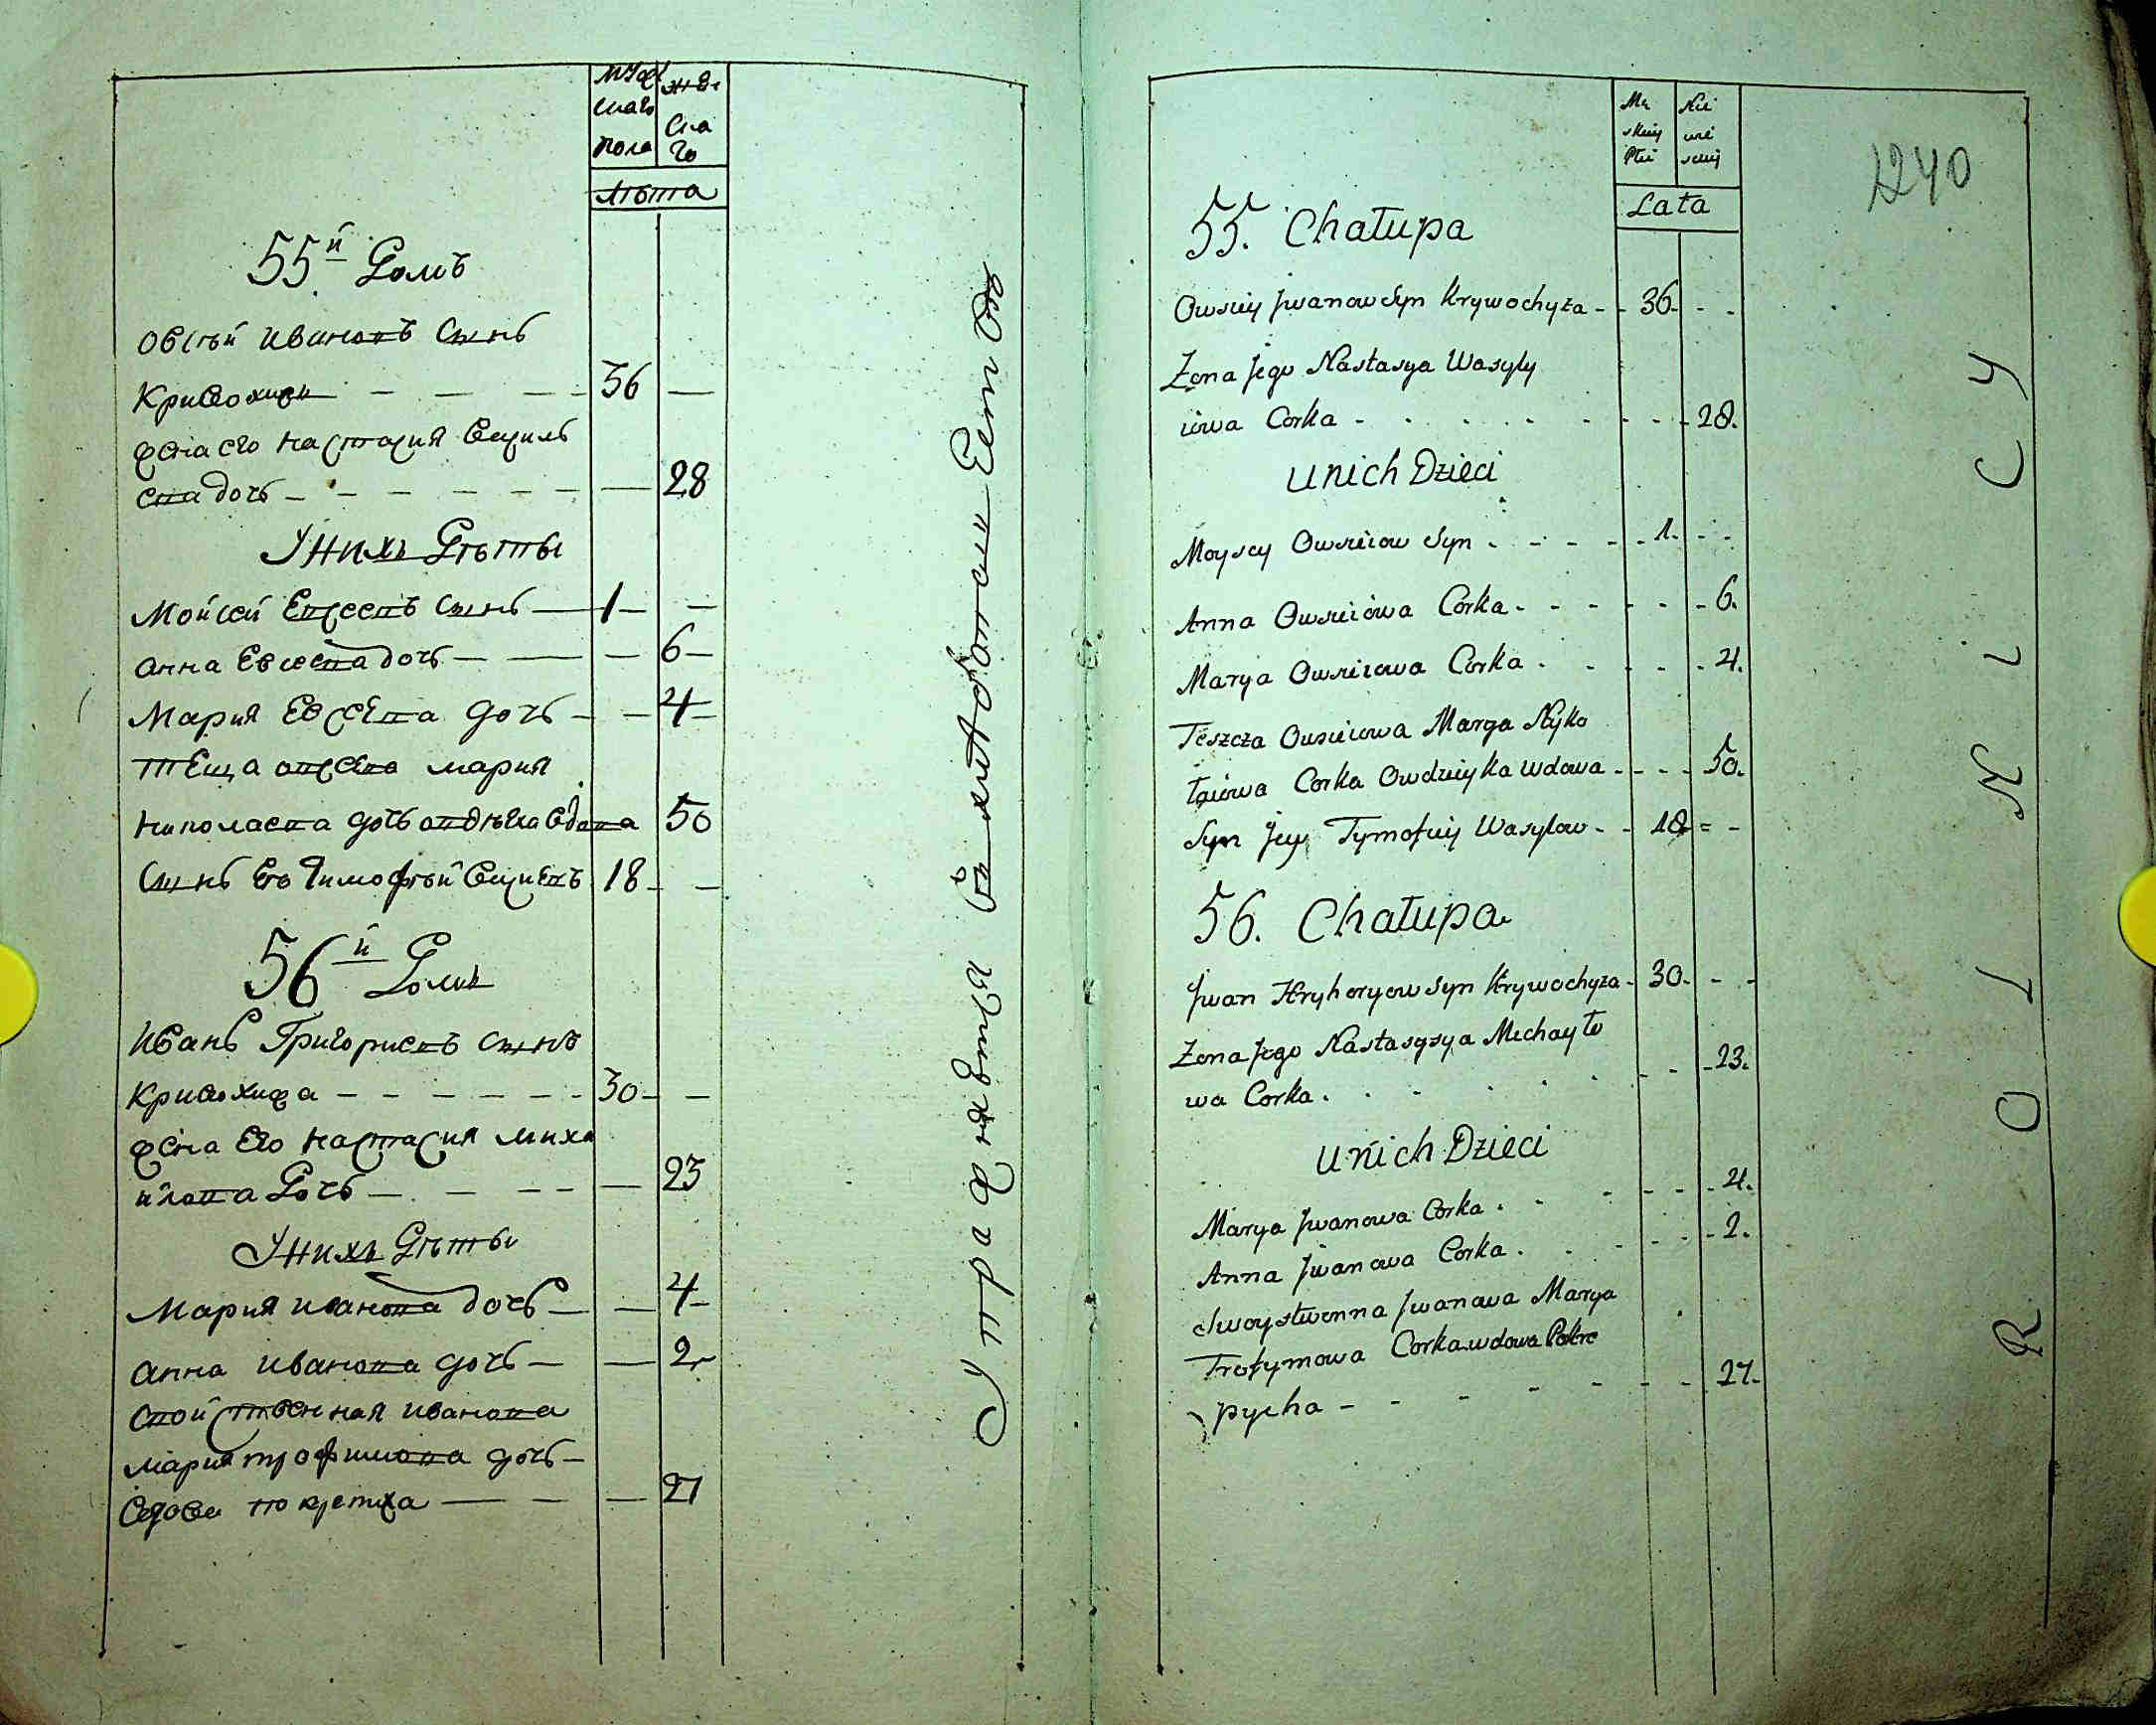 мужскаго пола
женскаго
лѣта
55й Домъ
Овсѣй Ивановъ сынъ
Кривохижа — — — — 36 —
жена его Настасия Василь
ева дочъ — — — — — — — 28
У нихъ Дѣты
Мойсей Евсеевъ сынъ — 1 — —
Анна Евсеева дочъ — — — 6 —
Мария Евсеева дочъ — — 4 —
Теща Мария
Николаева дочъ вдова 50
Сынъ Его Тимофѣй 18 — —
56й Домъ
Иванъ Григориевъ сынъ
Кривохижа — — — — — — 30 — —
жена Его Настасия Миха
йлова Дочъ — — — — — 23
У нихъ Дѣты
Мария Иванова дочъ — — 4 —
Анна Иванова дочъ — — 2 —
Свойственная Иванова
Мария Трофимова дочъ —
вдова — — — 27
У пражнявтця в хлѣбопашествѣ
Męskiey Płci
Niewieściey
Lata
1240
55. Chałupa
Owsiey Jwanow Syn Krywochyża - - 36. - -
Zona Jego Nastasya Wasyly
iowa Corka - . . . . . - - - 28.
U nich Dzieci
Moysey Owsieiow Syn . - - - - . 1. - -
Anna Owsieiowa Corka . - - - - - - 6.
Marya Owsieiowa Corka . - - - - 4.
Teszcza Owsieiowa Marya Nyko
łaiowa Corka Owdzieyka wdowa . - - - 50.
Syn Jey Tymofiey Wasylow - - 18 = -
56. Chałupa
Jwan Hryhoryow Syn Krywochyża - 30. - -
Zona Jego Nastasysya Michayło
wa Corka . . - . . . - - - 23.
U nich Dzieci
Marya Jwanowa Corka . - - - - - 4.
Anna Jwanowa Corka . . - - - - 2.
Swoystwenna Jwanowa Marya
Trofymowa Corka wdowa Pokre
pycha - - - - - - - 27.
ROLNICY